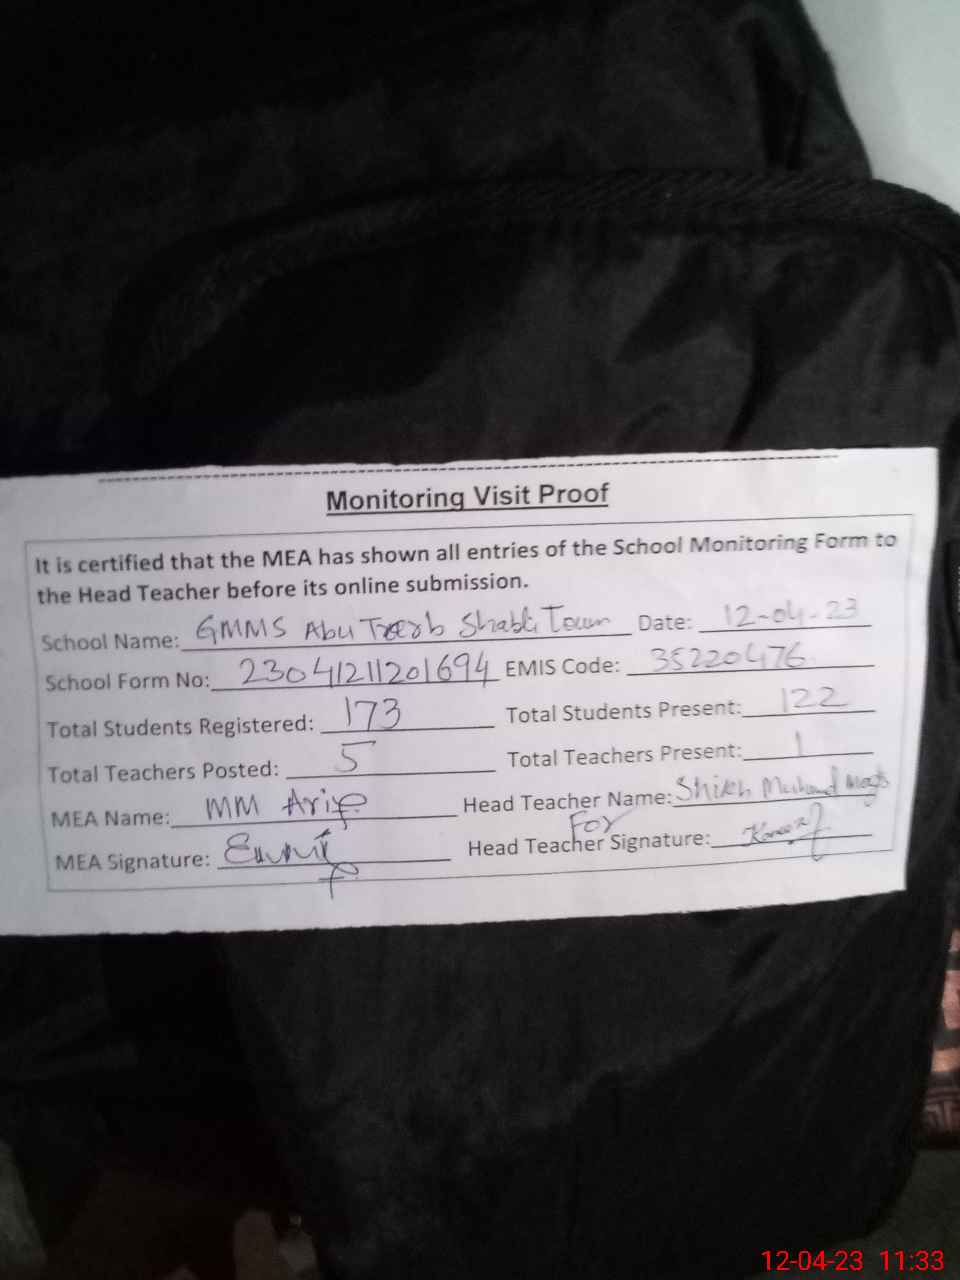 Monitoring Visit Proof
It is certified that the MEA has shown all entries of the School Monitoring Form to
the Head Teacher before its online submission.
School Name: GMMS Abu Town Date: 12-04-23
School Form No: 23041211201694 EMIS Code: 35220476
Total Students Registered: 173 Total Students Present: 122
Total Teachers Posted: 5 Total Teachers Present: 1
MEA Name: MM Arif Head Teacher Name:
MEA Signature: For Head Teacher Signature:
12-04-23 11:33